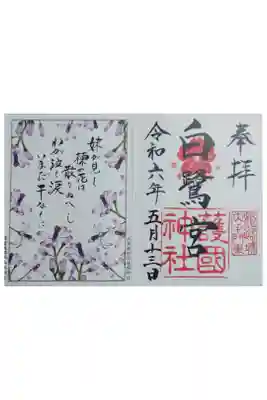 奉拝
白鷺宮
護國
神社
令和六年五月十三日
妹が見し
楝の花は
散りぬべし
わが泣く涙
いまだ干なくに